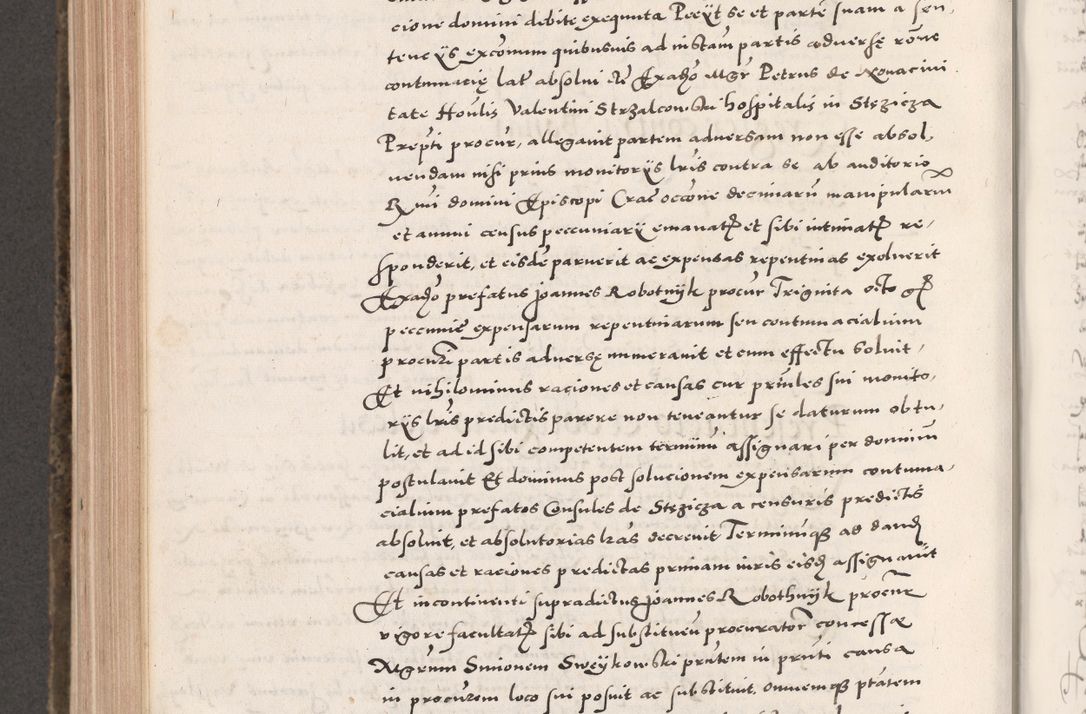 cione domini debite exequuta Peeyt se et partē suam a sen,
tencijs excomun quibusuis ad instam partis aduersę rōne
contumacię lat absolui etc Exadō Mgr Petrus de Xouacini
tate Honlis Valentini Strzalcowski hospitalis in Stęzicza
Prepti procur, allegauit partem aduersam non esse absol,
uendam nisi prius monitorijs lris contra se ab auditorio
Rmi domini Episcopi Crac occone decimarū manipularm
et annui census peccuniarij emanatę et sibi intimatę re,
sponderit, et eisdē paruerit ac expensas repentinas exoluerit
Exadō prefatus Joannes Robotnijk procur Triginta octo gř
peccunię expensarum repentinarum seu contumacialium
procuri partis aduersę numerauit et cum effectu soluit,
Et nihilominus raciones et causas cur prinles sui monito,
rijs lris predictis parere non teneantur se daturum obtu,
lit, et ad id sibi competentem terminū assignari per dominū
postulauit Et dominus post solucionem expensarum contuma,
cialium prefatos Consules de Stęzicza a censuris predictis
absoluit, et absolutorias lras decreuit Terminumq ad dand
causas et raciones predictas primam iuris eisd assignauit
Et incontinenti supradictus Joannes Robothnijk procur
vigore facultatę sibi ad substituen procurator concessæ
Mgrum Simonem Sweijkowski prntem in prnti causa
in procurem loco sui posuit ac substituit, omnemq ptatem